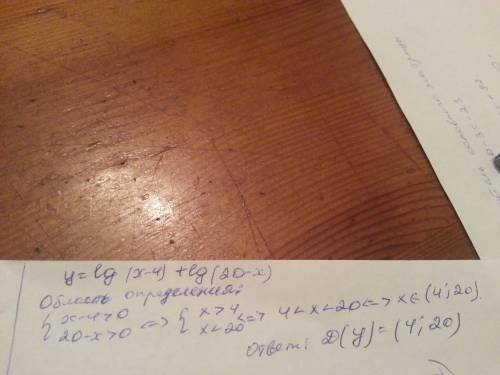 y = lg (x-4) + lg (20-x)
Область определения:
{ x-4>0 <=> { x>4 <=> 4<x<20 <=> x∈(4; 20).
20-x>0 x<20
Ответ: D(y) = (4; 20)